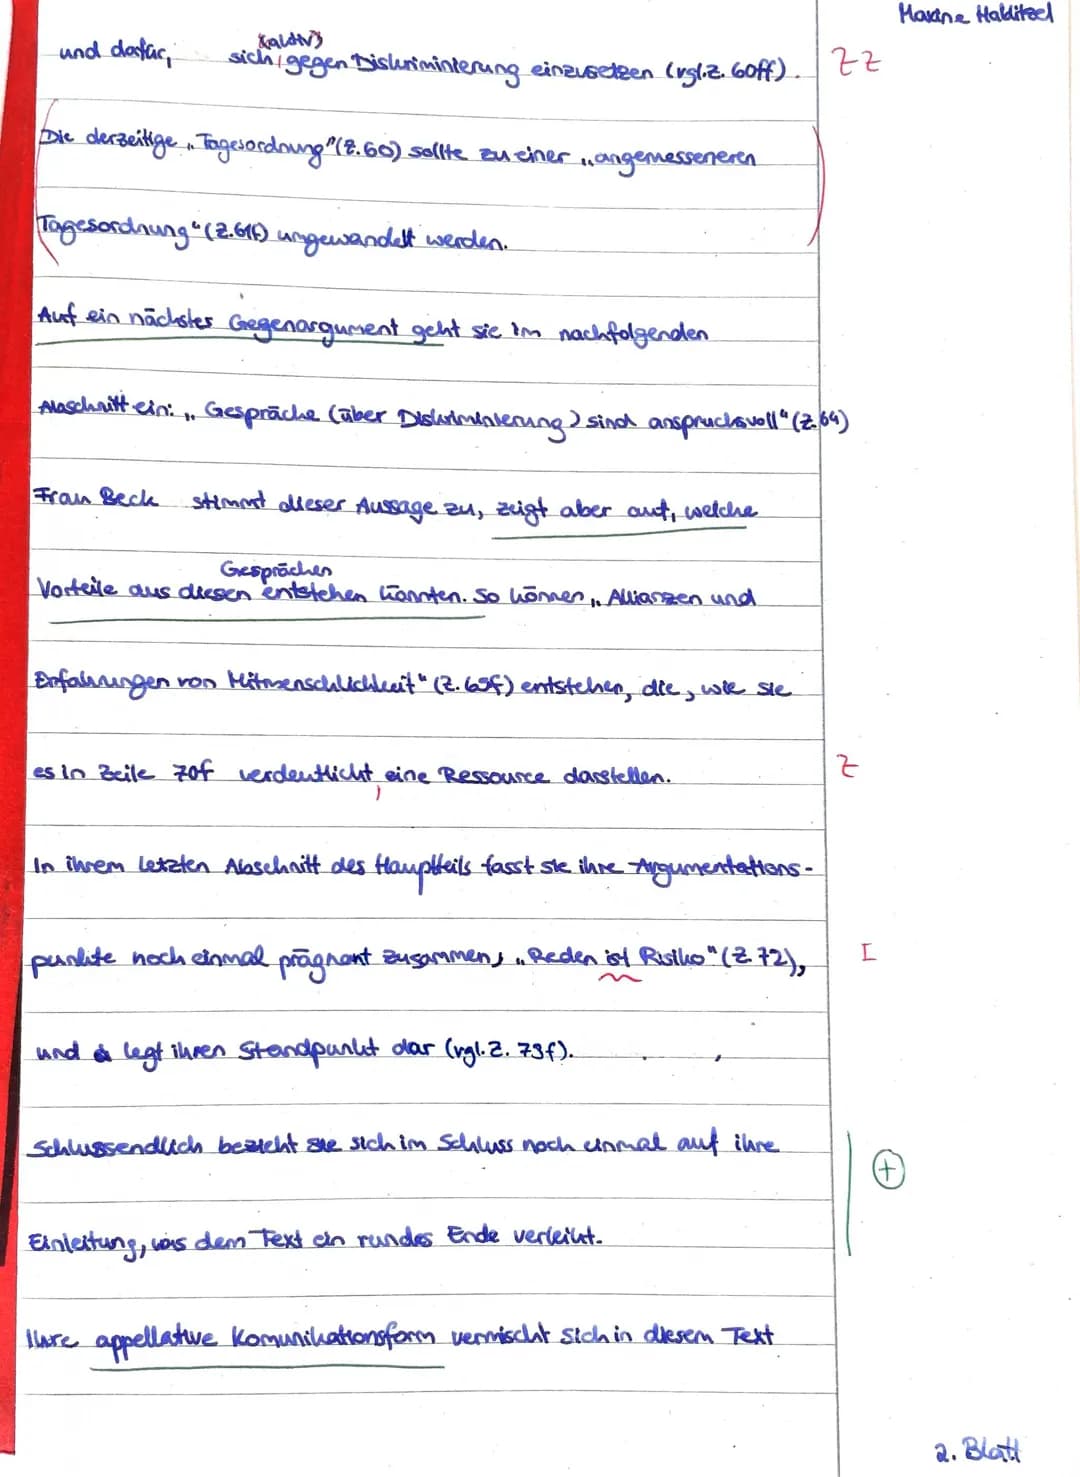 Maxine Halditzel
(aktiv)
und dafür, sich, gegen Diskriminierung einzusetzen (vgl. Z. 60ff). ZZ
Die derzeitige „Tagesordnung" (Z. 60) sollte zu einer „angemesseneren
Tagesordnung" (Z. 61f) umgewandelt werden.
Auf ein nächstes Gegenargument geht sie im nachfolgenden
Abschnitt ein: „Gespräche (über Diskriminierung) sind anspruchsvoll" (Z. 64)
Frau Beck stimmt dieser Aussage zu, zeigt aber auf, welche
Gesprächen
Vorteile aus diesen entstehen könnten. So können „Allianzen und
Erfahrungen von Mitmenschlichkeit" (Z. 65f) entstehen, die, wie sie
es in Zeile 70f verdeutlicht, eine Ressource darstellen. Z
In ihrem letzten Abschnitt des Hauptteils fasst sie ihre Argumentations-
punkte noch einmal prägnant zusammen, „Reden ist Risiko" (Z. 72), I
und legt ihren Standpunkt dar (vgl. Z. 73f).
Schlussendlich bezieht sie sich im Schluss noch einmal auf ihre
+
Einleitung, was dem Text ein rundes Ende verleiht.
Ihre appellative Komunikationsform vermischt sich in diesem Text
2. Blatt